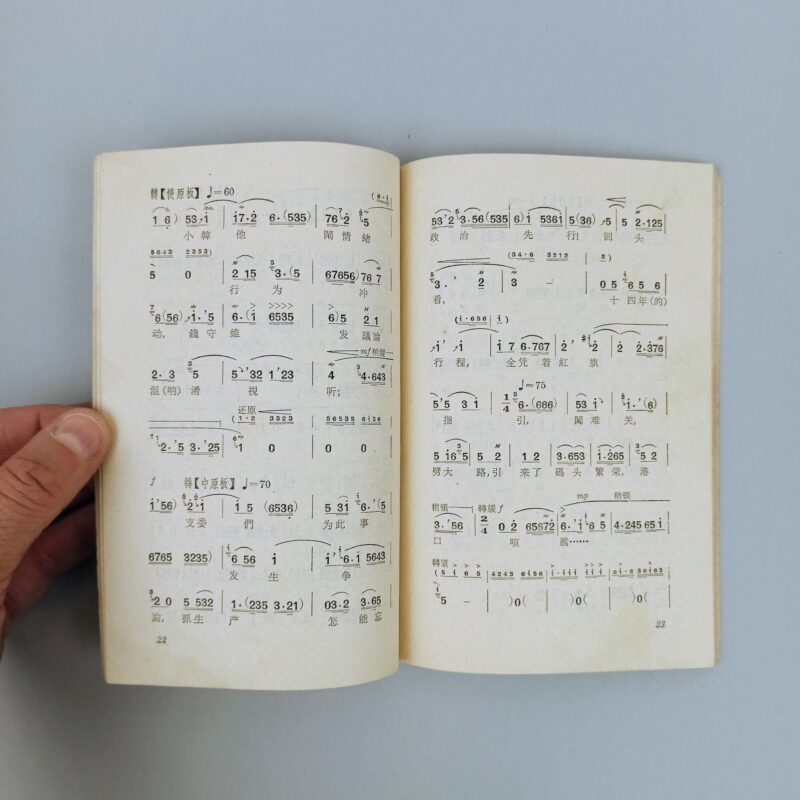 轉【慢原板】 ♩=60
(6·5
1 6) 53·i i7·2 6·(535) 76 2 5
小韓他 鬧情緒
3643 2353)
5 0 2 15 3·(5 67656) 76 7
行为 冲
6(56) i·'5 6·(i 6535 6)5 2 1
动,錢守維 发議論
mf 稍緩
2·3 5 5'32 1'23 4 4·643
混(吶)淆視 听;
还原
(1·2 3523 56535 6i56
2·'5 3·25 1 0 0 0
f 轉【中原板】 ♩=70
i'56) 2·i i 5 (6536) 5 3i 6·'(5
支委們 为此事
6765 3235) 6 56 i i' 6·i 5643
发生爭
2 0 5 532 1·(235 3·21) 03·2 3·65
論,抓生产 怎能忘
22
53'2 3·56(535 6)i 536i 5(36) 5 5 2·125
政治先行!回头
(34·6 3212 3)
3· 2 3 – 0 5 6 5 6
看, 十四年(的)
(i·656 i)
i' i 7 6·767 2' i 2 2 2·376
行程,全凭着紅旗
♩=75
5'5 3 i 1/4 6·(666) 53 i i·'(6)
指引,闖难关,
5 i6 5 5 2 1 2 3·653 1·265 5 2
劈大路,引来了碼头繁荣,港
稍頓 轉緩 f mp 稍頓
3·'56 2/4 0 2 65672 6·'i 6 5 4·245 65 i
口喧騰……
轉紧
(5 i 6 5 4245 6i56 i·iii i i i 0i·6 56i65
5 – )0( )0( )0(
23